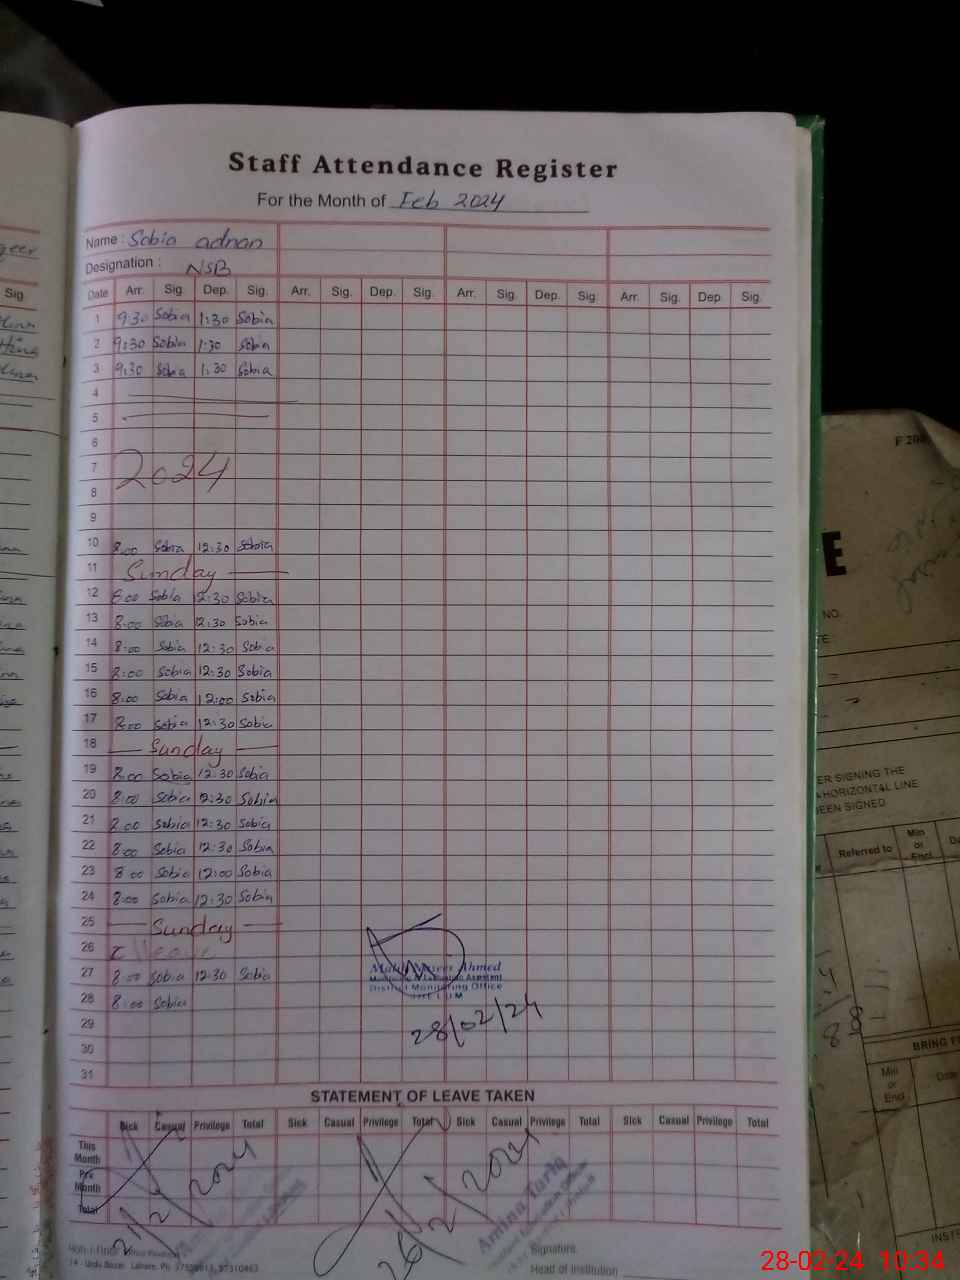 Staff Attendance Register
For the Month of Feb 2024
Name : Sobia adnan
Designation : NSB
Date Arr. Sig. Dep. Sig. Arr. Sig. Dep. Sig. Arr. Sig. Dep. Sig. Arr. Sig. Dep. Sig.
1 9:30 Sobia 1:30 Sobia
2 9:30 Sobia 1:30 Sobia
3 9:30 Sobia 1:30 Sobia
4
5
6
7 2024
8
9
10 8:00 Sobia 12:30 Sobia
11 Sunday
12 8:00 Sobia 12:30 Sobia
13 8:00 Sobia 12:30 Sobia
14 8:00 Sobia 12:30 Sobia
15 8:00 Sobia 12:30 Sobia
16 8:00 Sobia 12:00 Sobia
17 8:00 Sobia 12:30 Sobia
18 Sunday
19 8:00 Sobia 12:30 Sobia
20 8:00 Sobia 12:30 Sobia
21 8:00 Sobia 12:30 Sobia
22 8:00 Sobia 12:30 Sobia
23 8:00 Sobia 12:00 Sobia
24 8:00 Sobia 12:30 Sobia
25 Sunday
26 Leave
27 8:00 Sobia 12:30 Sobia
28 8:00 Sobia
29
30
31
Ahmed
District Monitoring Office
JHELUM
28/02/24
STATEMENT OF LEAVE TAKEN
Sick Casual Privilege Total Sick Casual Privilege Total Sick Casual Privilege Total Sick Casual Privilege Total
This Month
Pre Month
Total
2024
2/2024
Amina Tariq
Urdu Bazar, Lahore. Ph:
Signature
Head of Institution
Sig.
NO.
ER SIGNING THE
HORIZONTAL LINE
BEEN SIGNED
Referred to
Min or Encl
BRING F
Min or Encl
Date
INST
28-02-24 10:34